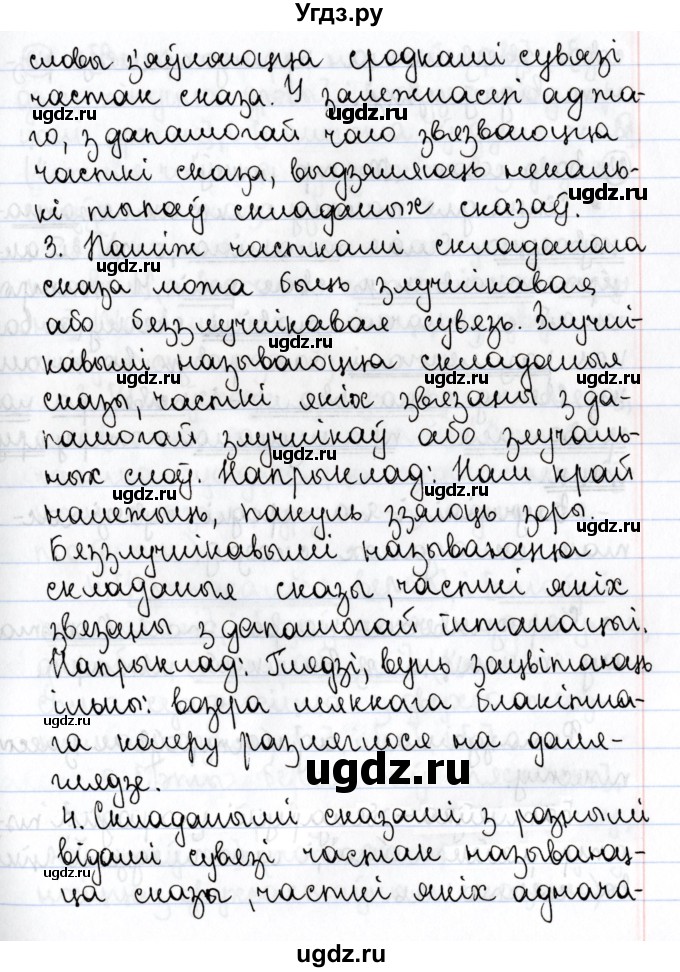 Угдз.ру
словы з'яўляюцца сродкамі сувязі
частак сказа. У залежнасці ад та-
го, з дапамогай чаго звязваюцца
часткі сказа, выдзяляюць некаль-
кі тыпаў складаных сказаў.
3. Паміж часткамі складанага
сказа можа быць злучнікавая
або бяззлучнікавая сувязь. Злучні-
кавымі называюцца складаныя
сказы, часткі якіх звязаны з да-
памогай злучнікаў або злучаль-
ных слоў. Напрыклад: Нам край
належыць, пакуль ззяюць зоры.
Бяззлучнікавымі называюцца
складаныя сказы, часткі якіх
звязаны з дапамогай інтанацыі.
Напрыклад: Глядзі, вунь зацвітаюць
ільны: возера мяккага блакітна-
га колеру разляглося на дале-
глядзе.
4. Складанымі сказамі з рознымі
відамі сувязі частак называюц-
ца сказы, часткі якіх аднача-
ugdz.ru